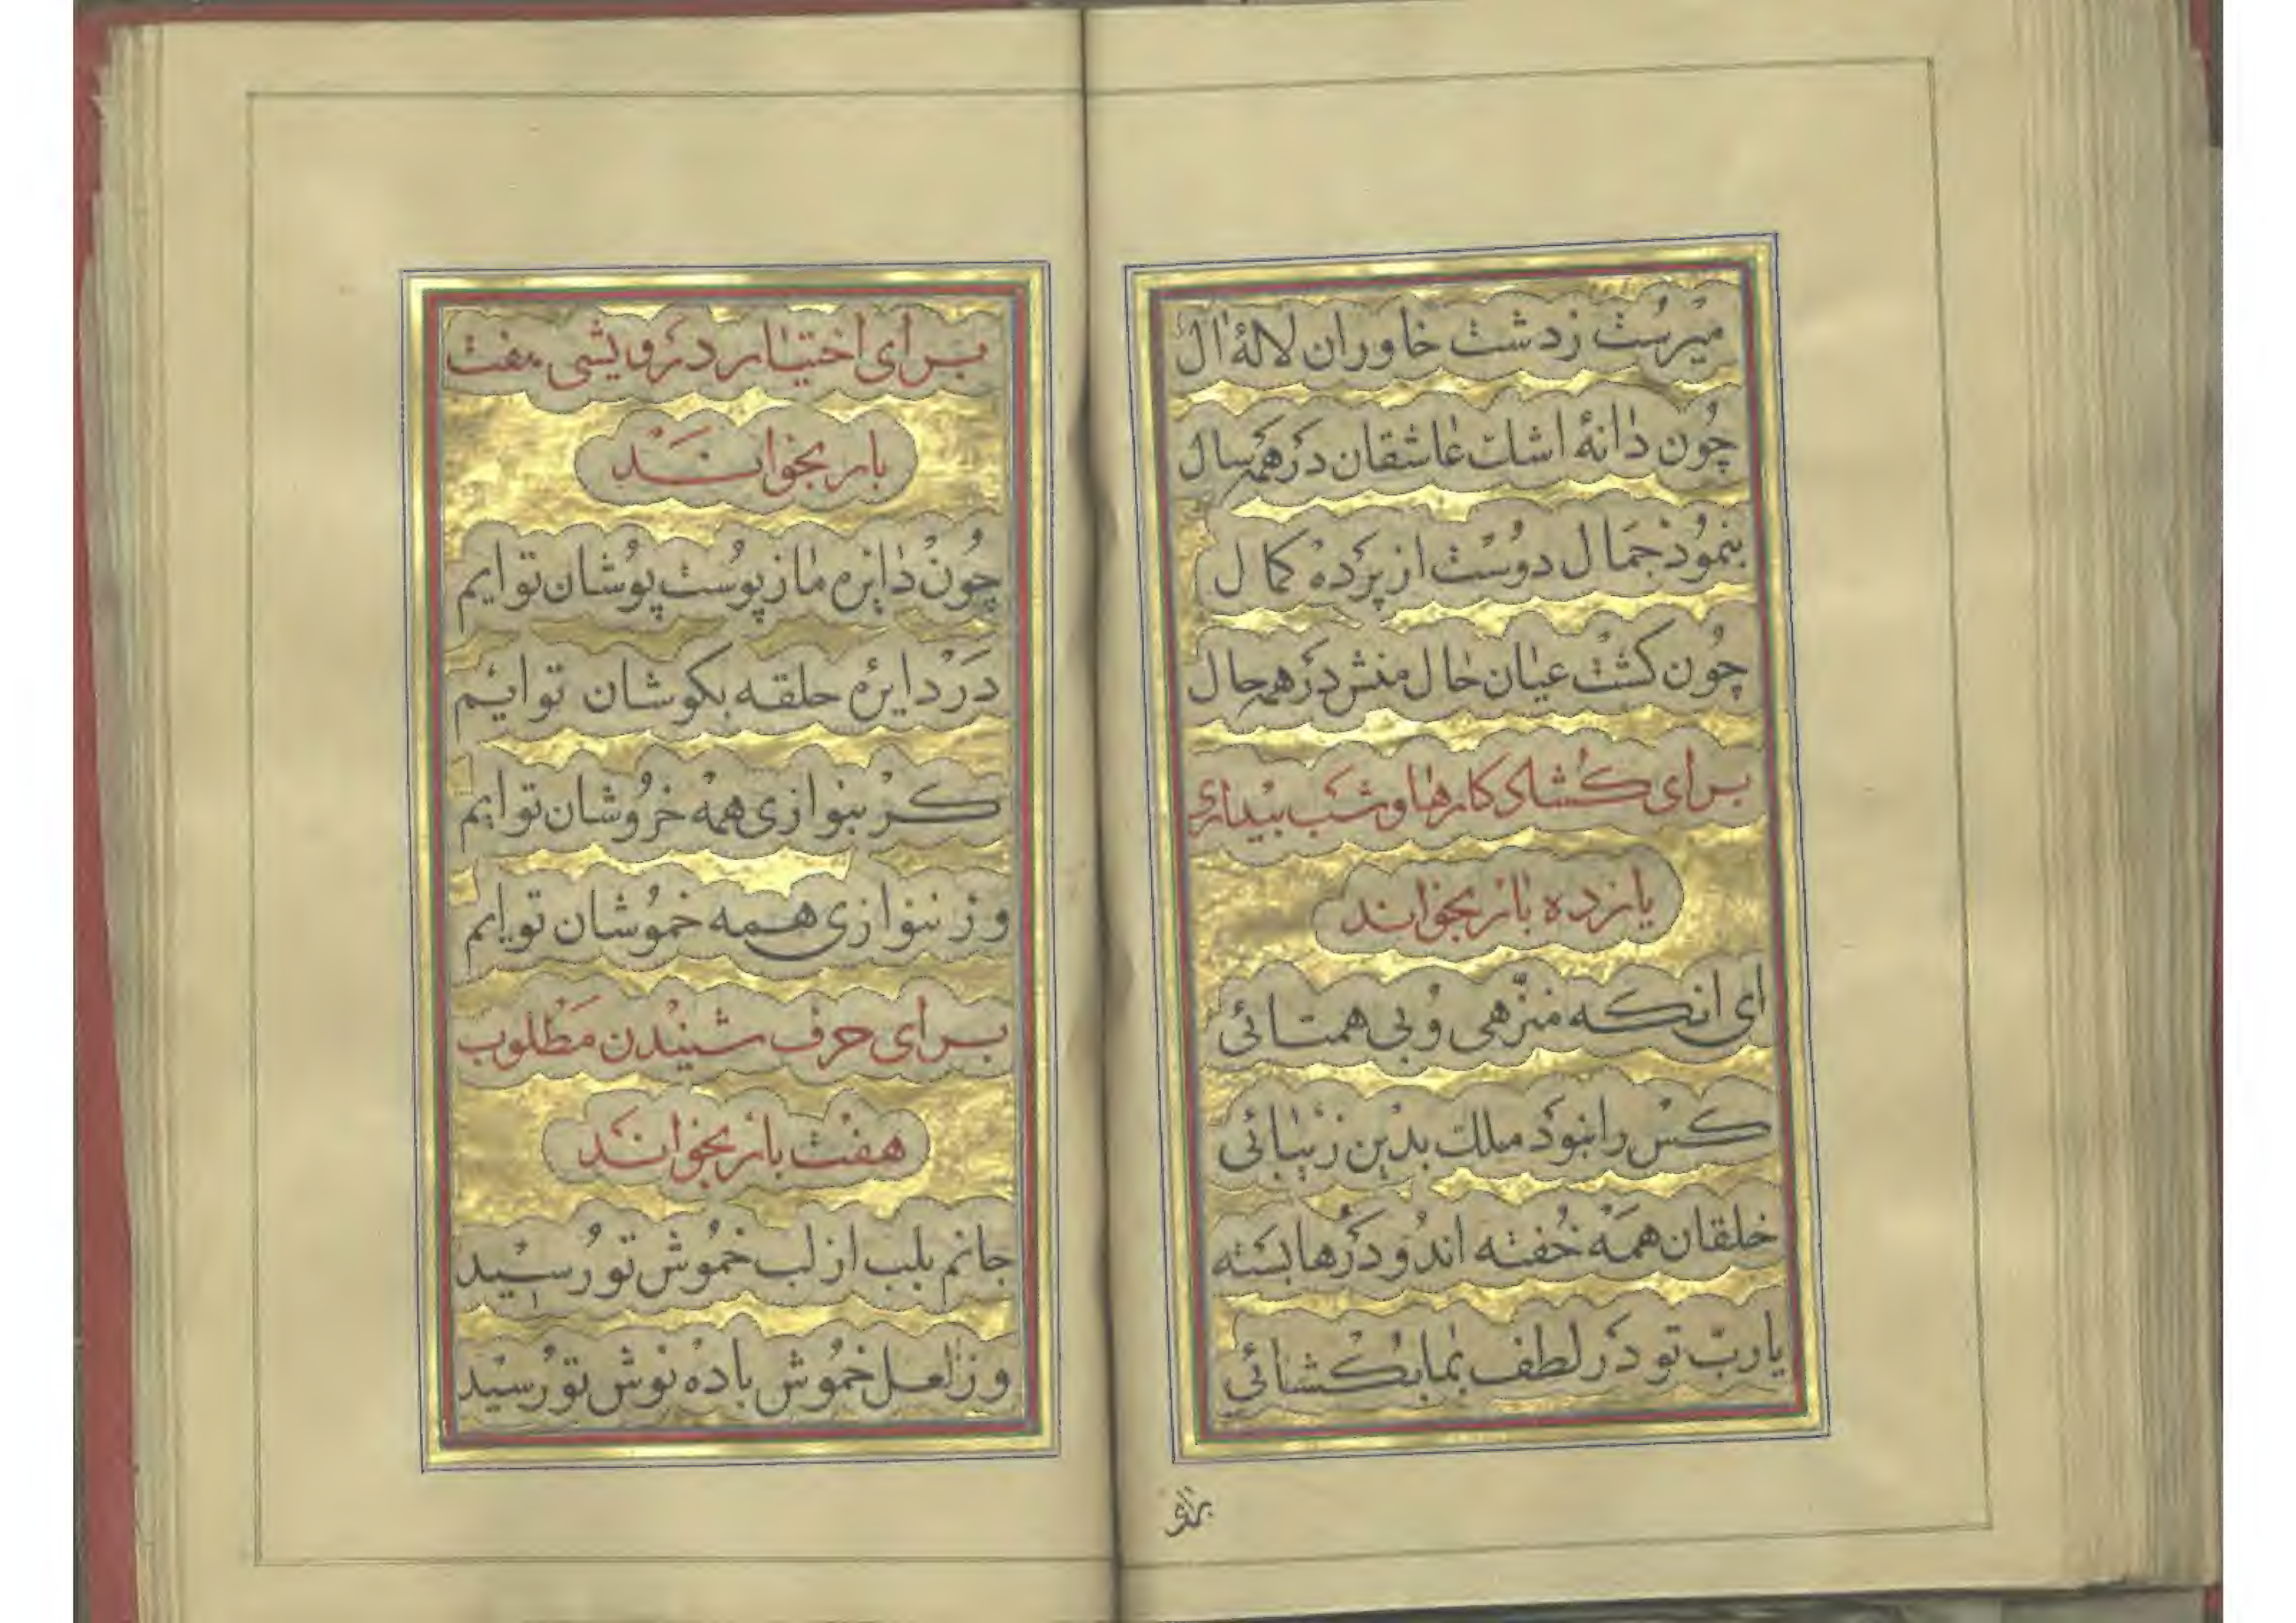 میرست زدشت خاوران لالهٔ ال
چون دانهٔ اشک عاشقان در همه سال
بنمود جمال دوست از پرده کمال
چون کشت عیان حال منش در همه حال
برای کشاد کارها و شب بیداری
یازده بار بخواند
ای انکه منزّهی و بی همتائی
کس را نبود ملک بدین زیبائی
خلقان همه خفته اند و درها بسته
یا ربّ تو در لطف بما بکشائی
برای
برای اختیار درویشی هفت
بار بخواند
چون دایره ما ز پوست پوشان توایم
در دایره حلقه بکوشان توایم
کر بنوازی همه خروشان توایم
ور ننوازی همه خموشان توایم
برای حرف شنیدن مطلوب
هفت بار بخواند
جانم بلب از لب خموش تو رسید
وز لعل خموش باده نوش تو رسید